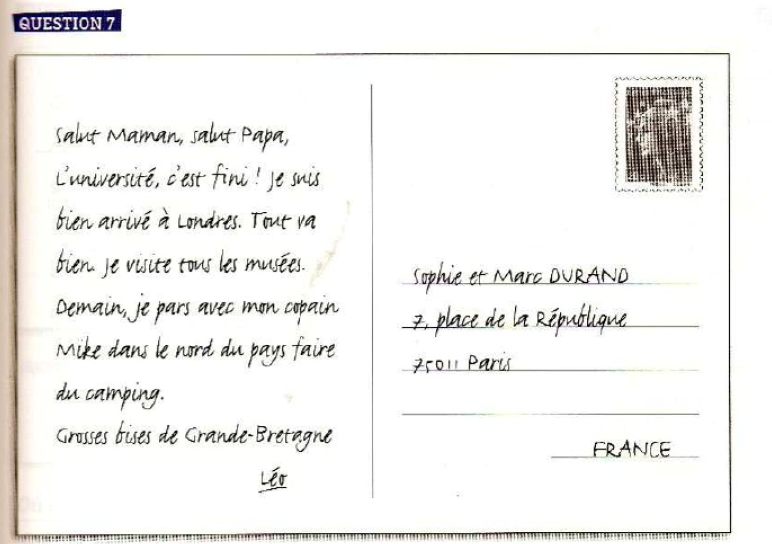 QUESTION 7
Salut Maman, salut Papa,
L'université, c'est fini ! Je suis
bien arrivé à Londres. Tout va
bien. Je visite tous les musées.
Demain, je pars avec mon copain
Mike dans le nord du pays faire
du camping.
Grosses bises de Grande-Bretagne
Léo
Sophie et Marc DURAND
7, place de la République
75011 Paris
FRANCE